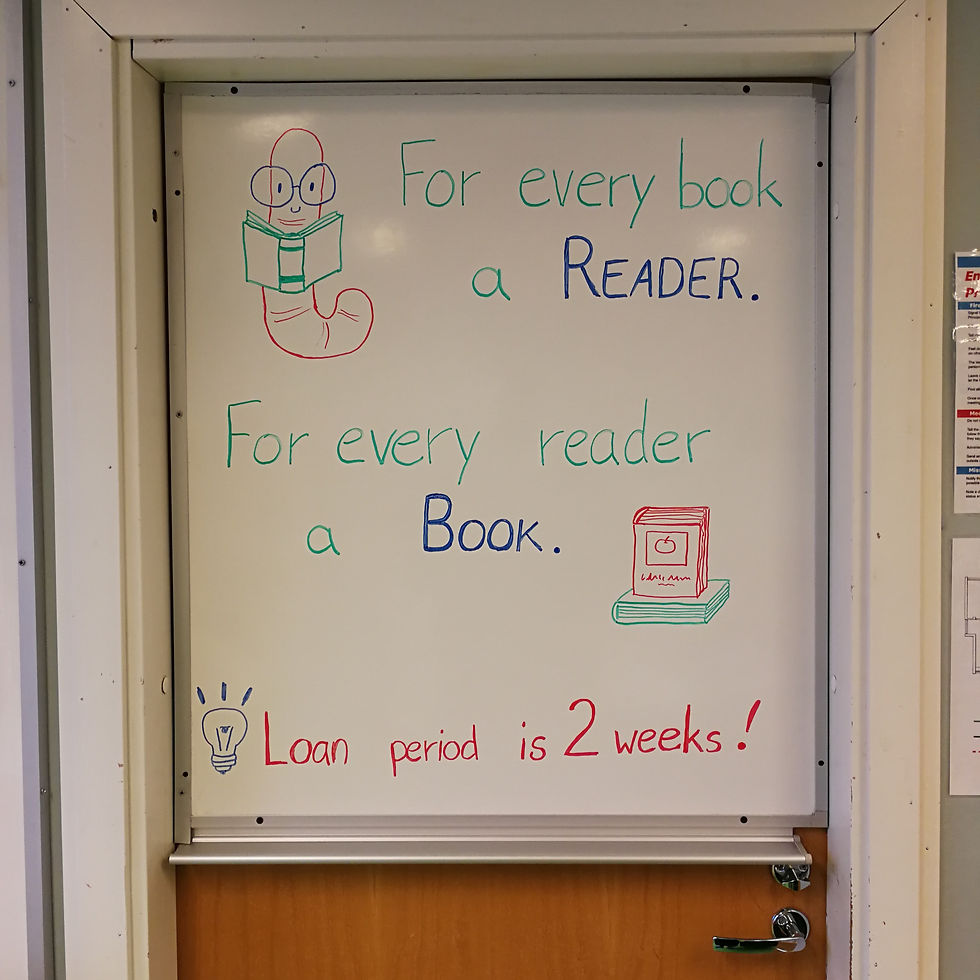 For every book
a READER.
For every reader
a BOOK.
Loan period is 2 weeks!
En
Pr
Fire
Me
Miss